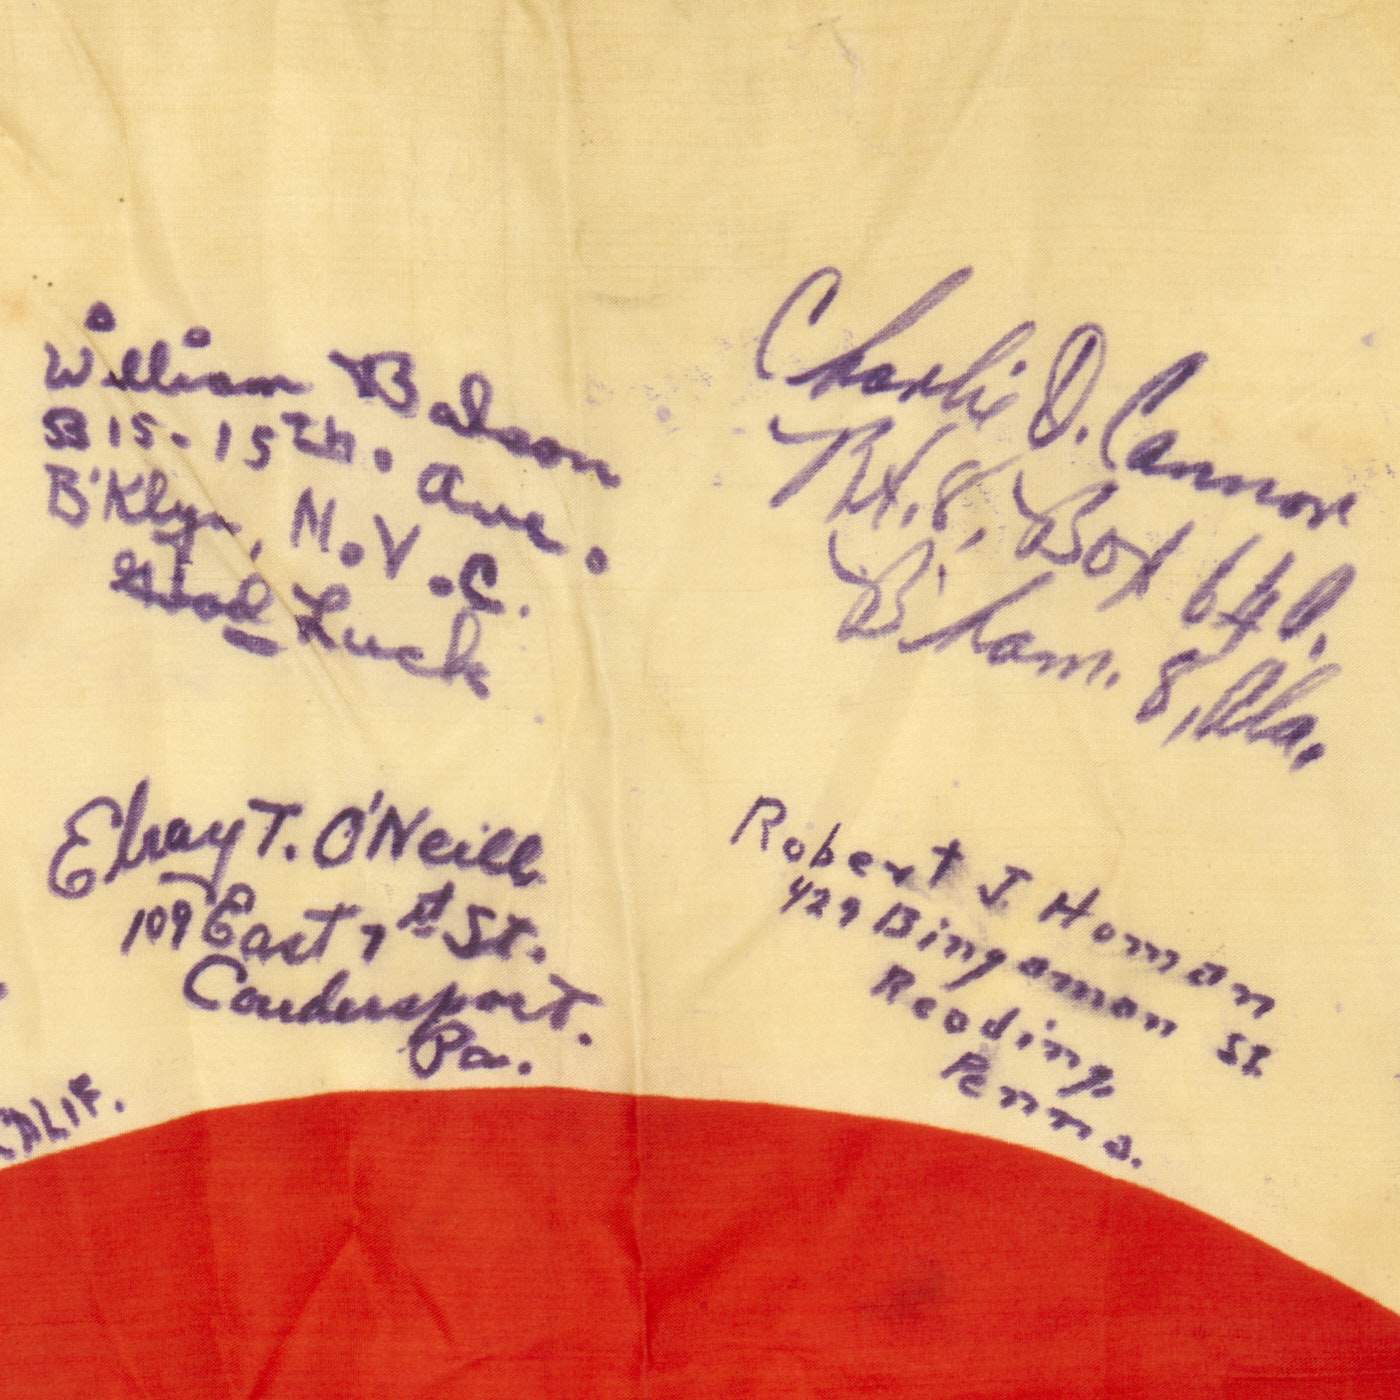 William Balson
815-15th. Ave.
B'klyn, N.Y.C.
Good Luck
Charlie D. Cannon
Rt. 8, Box 640.
B'ham. 8, Ala.
Elray T. O'Neill
109 East 7th St.
Coudersport.
Pa.
Robert J. Homan
429 Bingaman St.
Reading,
Penna.
CALIF.